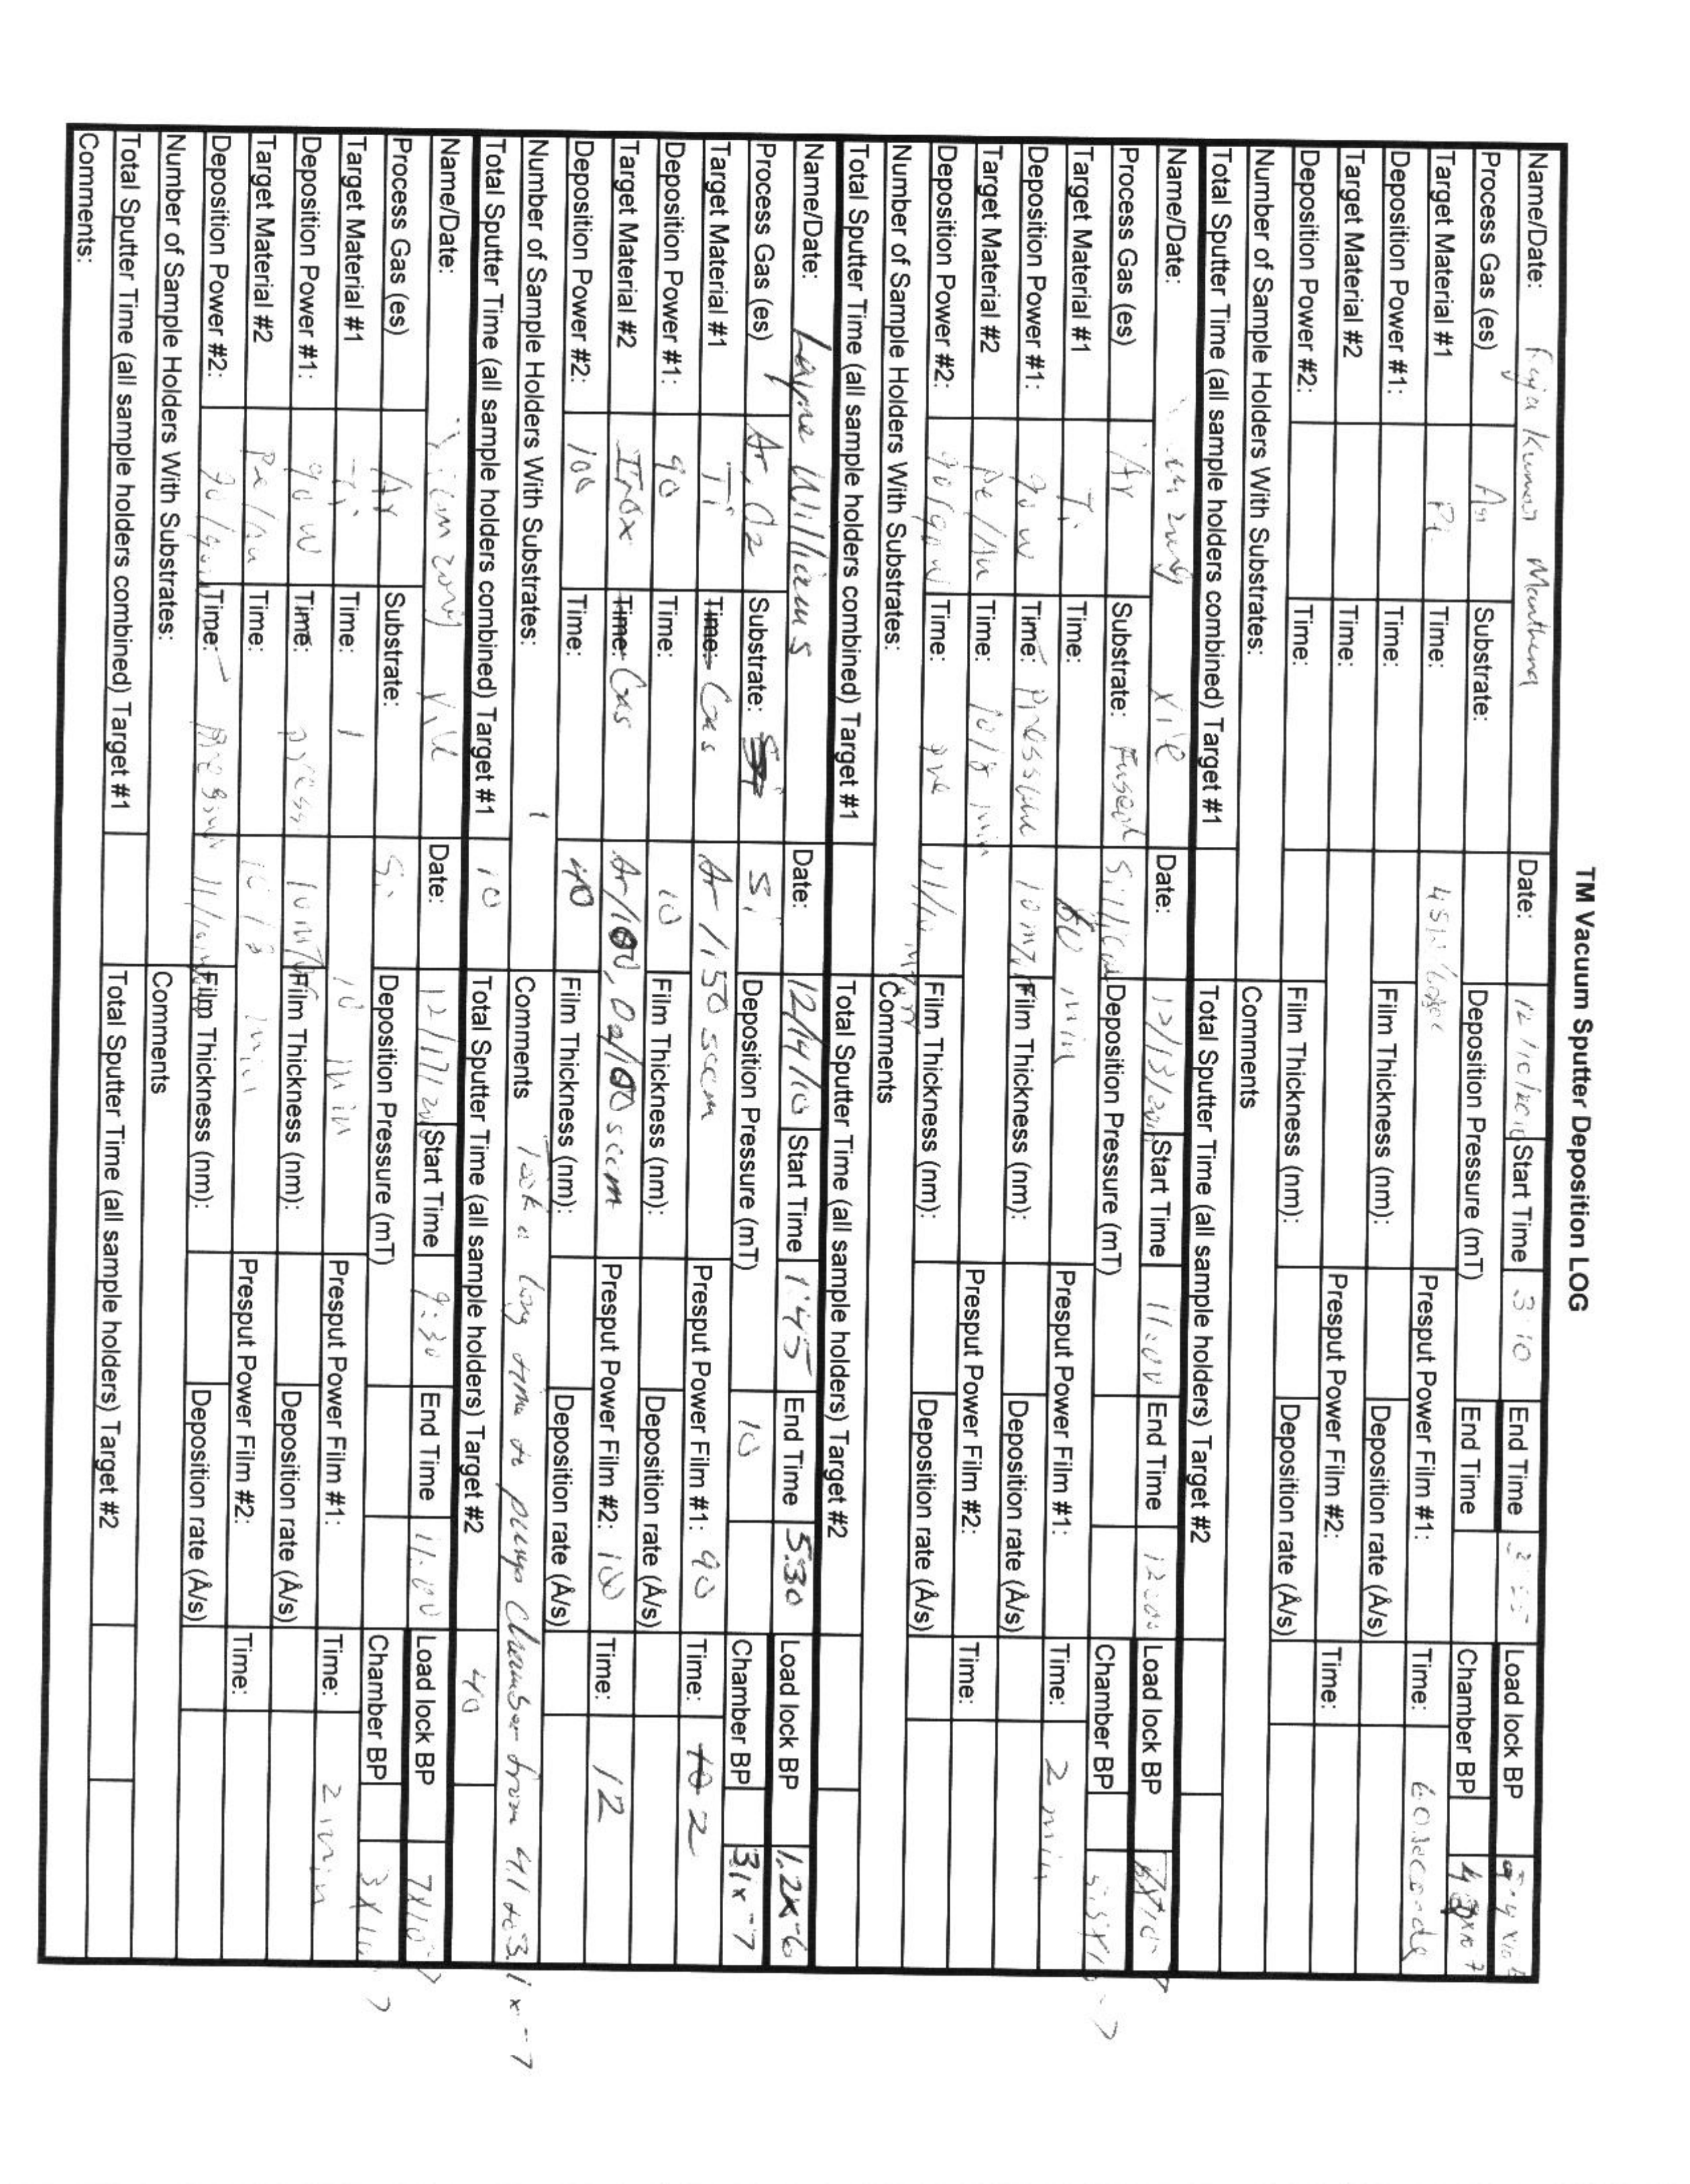 TM Vacuum Sputter Deposition LOG
Name/Date: Kumar Date: 12/10/2010 Start Time 3:10 End Time Load lock BP
Process Gas (es) Ar Substrate: Deposition Pressure (mT) End Time Chamber BP
Target Material #1 Time: Presput Power Film #1: Time: 60 seconds
Deposition Power #1: Time: Film Thickness (nm): Deposition rate (Å/s)
Target Material #2 Time: Presput Power Film #2: Time:
Deposition Power #2: Time: Film Thickness (nm): Deposition rate (Å/s)
Number of Sample Holders With Substrates: Comments
Total Sputter Time (all sample holders combined) Target #1 Total Sputter Time (all sample holders) Target #2
Name/Date: Xie Date: 12/13/2010 Start Time 11:00 End Time 12:00 Load lock BP
Process Gas (es) Ar Substrate: Fused Silica Deposition Pressure (mT) Chamber BP
Target Material #1 Ti Time: min Presput Power Film #1: Time: 2 min
Deposition Power #1: 90 w Time: Pressure 10 mT Film Thickness (nm): Deposition rate (Å/s)
Target Material #2 Time: 10/8 min Presput Power Film #2: Time:
Deposition Power #2: 90/90w Time: Film Thickness (nm): Deposition rate (Å/s)
Number of Sample Holders With Substrates: Comments
Total Sputter Time (all sample holders combined) Target #1 Total Sputter Time (all sample holders) Target #2
Name/Date: Layne Williams Date: 12/14/10 Start Time 1:45 End Time 5:30 Load lock BP 1.2x-6
Process Gas (es) Ar, O2 Substrate: Si Deposition Pressure (mT) 10 Chamber BP 3.1x-7
Target Material #1 Ti Time: Gas Ar/150 sccm Presput Power Film #1: 90 Time: 2
Deposition Power #1: 90 Time: 10 Film Thickness (nm): Deposition rate (Å/s)
Target Material #2 IrOx Time: Gas Ar/100, O2/100 sccm Presput Power Film #2: 100 Time: 12
Deposition Power #2: 100 Time: 40 Film Thickness (nm): Deposition rate (Å/s)
Number of Sample Holders With Substrates: 1 Comments Took a long time to pump Chamber from 4.1 to 3.1x-7
Total Sputter Time (all sample holders combined) Target #1 10 Total Sputter Time (all sample holders) Target #2 40
Name/Date: Date: 12/17/2010 Start Time 9:30 End Time 11:00 Load lock BP
Process Gas (es) Ar Substrate: Si Deposition Pressure (mT) Chamber BP
Target Material #1 Ti Time: 10 min Presput Power Film #1: Time: 2 min
Deposition Power #1: 90 w Time: press 10 mT Film Thickness (nm): Deposition rate (Å/s)
Target Material #2 Time: 10/8 min Presput Power Film #2: Time:
Deposition Power #2: Time: Film Thickness (nm): Deposition rate (Å/s)
Number of Sample Holders With Substrates: Comments
Total Sputter Time (all sample holders combined) Target #1 Total Sputter Time (all sample holders) Target #2
Comments: